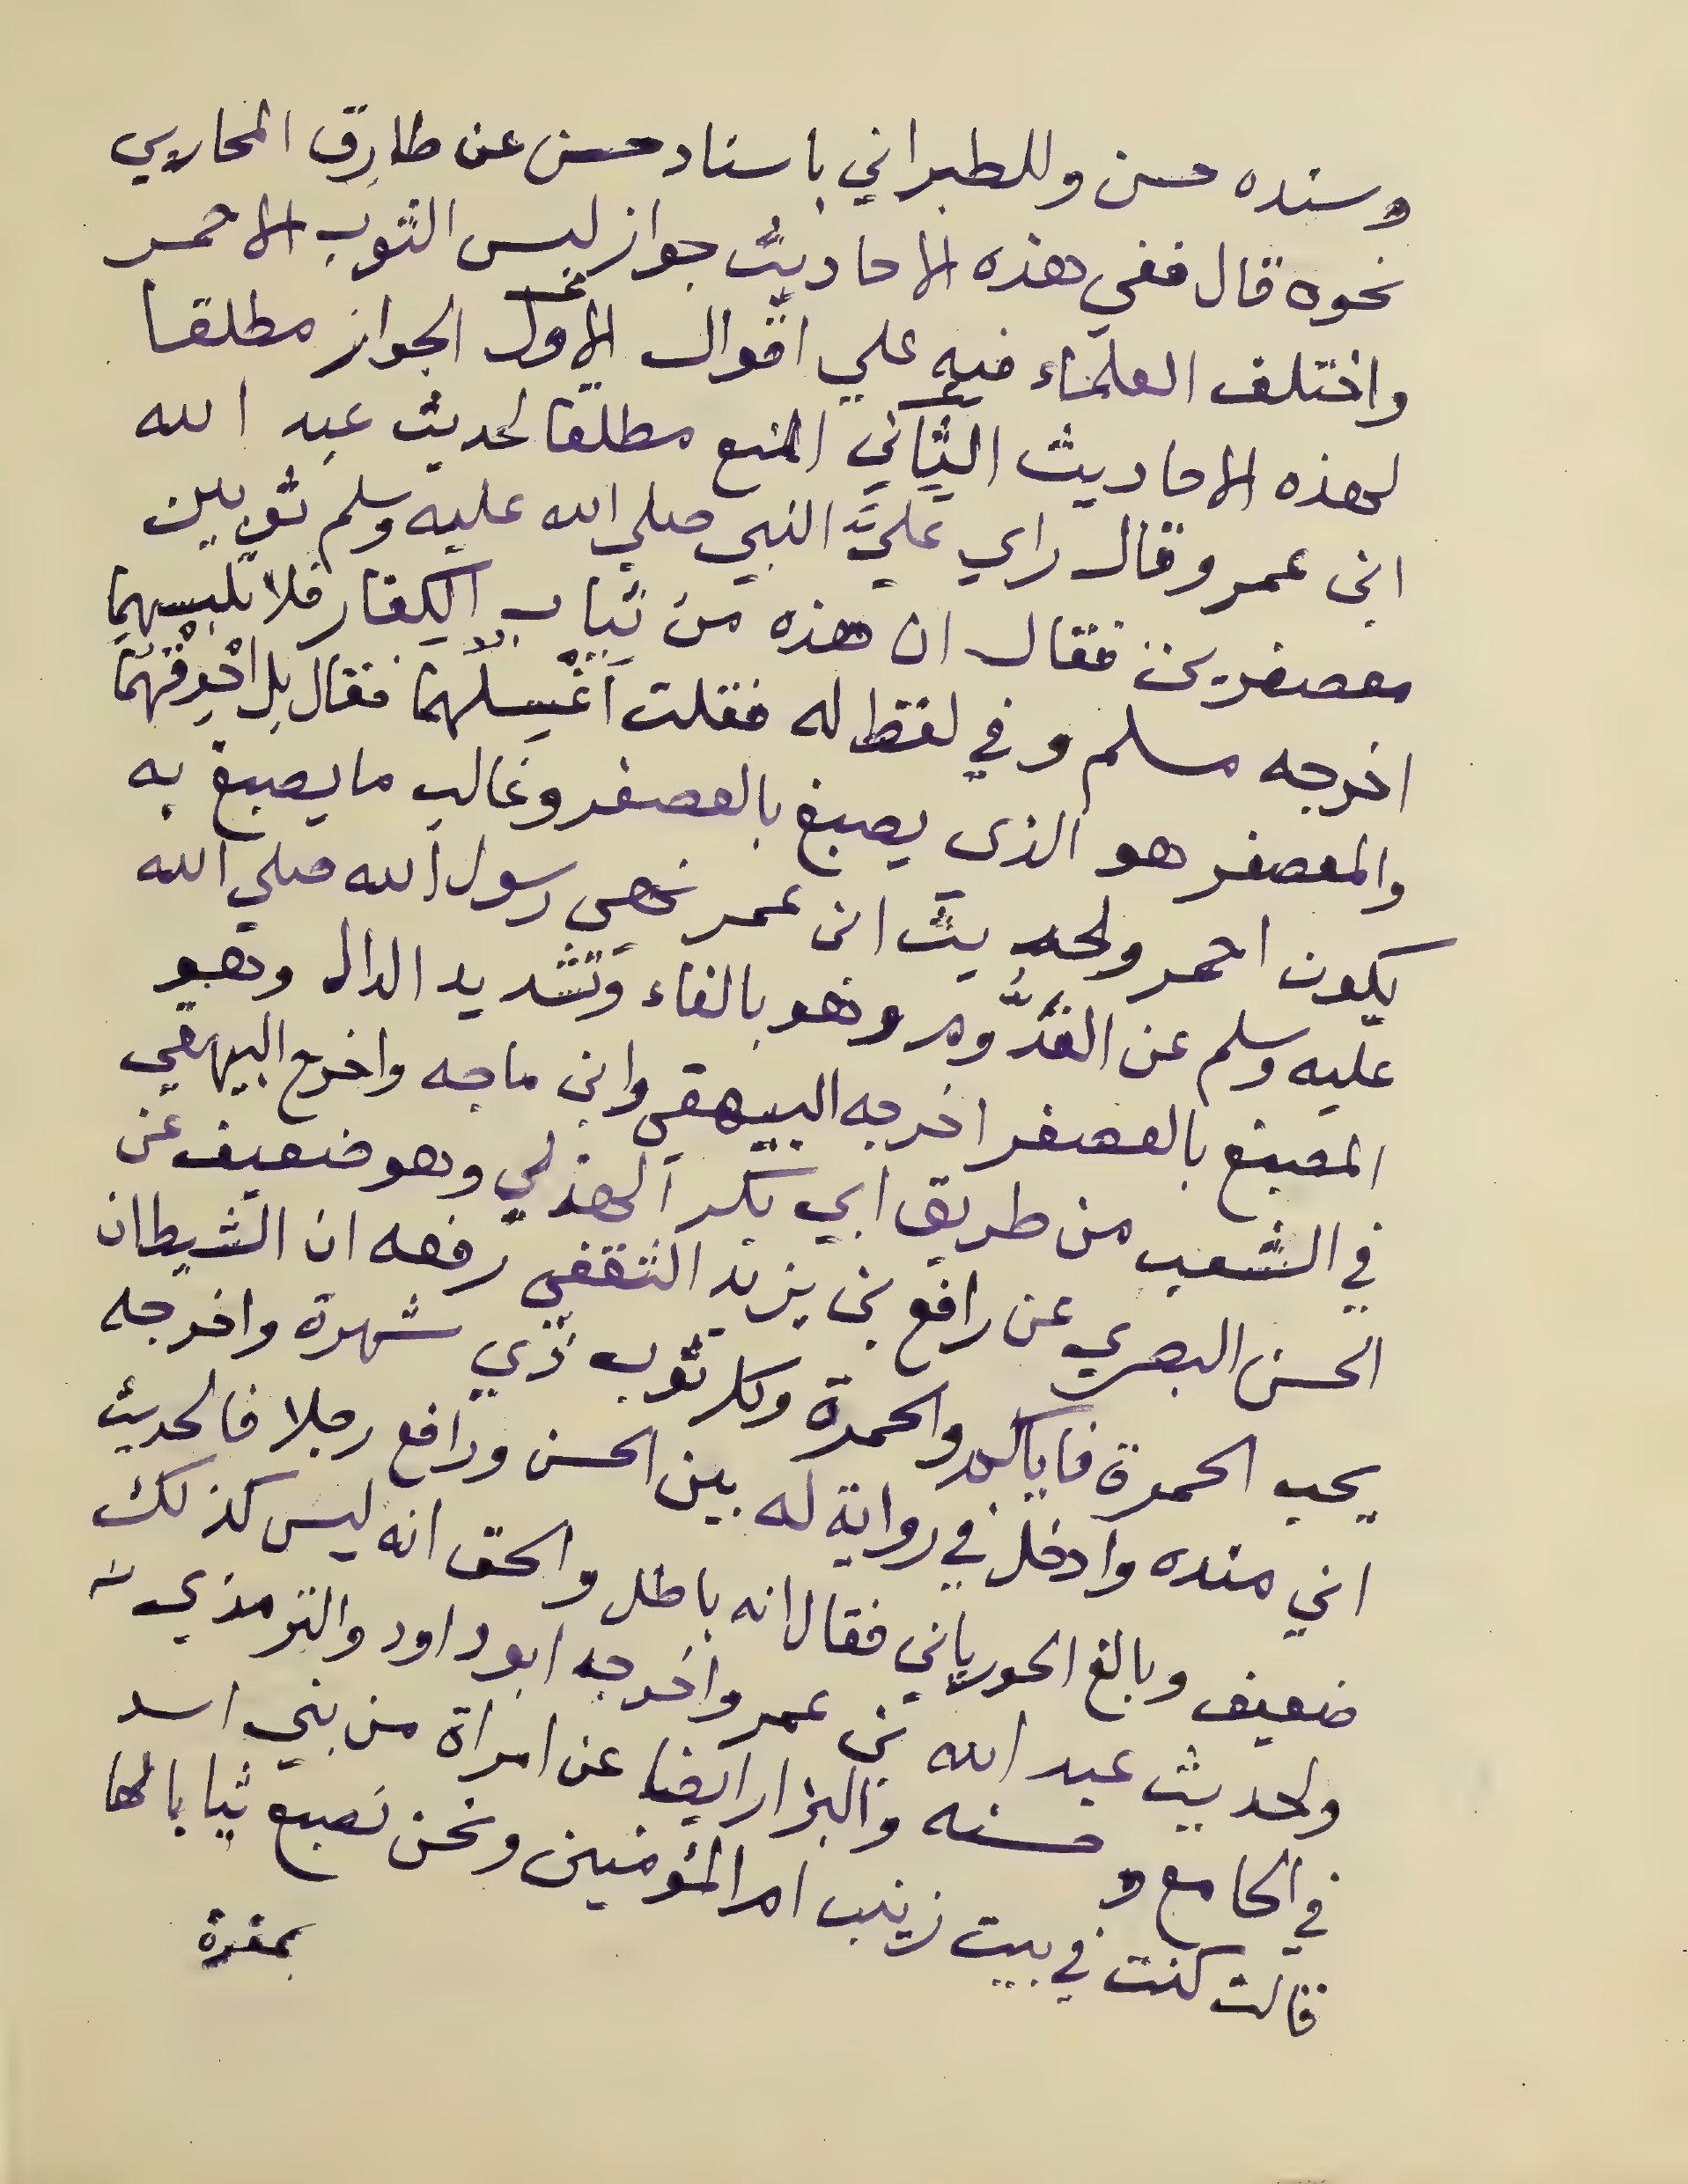 وسنده حسن وللطبراني باسناد حسن عن طارق المحاربي
نحوه قال ففي هذه الاحاديث جواز لبس الثوب الاحمر
واختلف العلماء فيه علي اقوال الاول الجواز مطلقا
لهذه الاحاديث الثاني المنع مطلقا لحديث عبد الله
ابن عمر وقال راي عليَّ النبي صلي الله عليه وسلم ثوبين
معصفرين فقال ان هذه من ثياب الكفار فلا تلبسهما
اخرجه مسلم وفي لفظ له فقلت اَغْسِلُهما فقال بل احْرِقْهُما
والمعصفر هو الذي يصبغ بالعصفر وغالب ما يصبغ به
يكون احمر ولحديث ابن عمر نهي رسول الله صلي الله
عليه وسلم عن الفَدَّوم وهو بالفاء وتشديد الدال وهو
المصبغ بالعصفر اخرجه البيهقي وابن ماجه واخرج البيهقي
في الشعب من طريق ابي بكر الهذلي وهو ضعيف عن
الحسن البصري عن رافع بن يزيد الثقفي رفعه ان الشيطان
يحب الحمرة فاياكم والحمرة وكل ثوب ذي شهرة واخرجه
ابن منده وادخل في رواية له بين الحسن ورافع رجلا فالحديث
ضعيف وبالغ الحورياني فقال انه باطل والحق انه ليس كذلك
ولحديث عبد الله بن عمر واخرجه ابو داود والترمذي
في الجامع وحسنه والبزار ايضا عن امراة من بني اسد
قالت كنت في بيت زينب ام المؤمنين ونحن نصبغ ثيابا لها
بمغرة